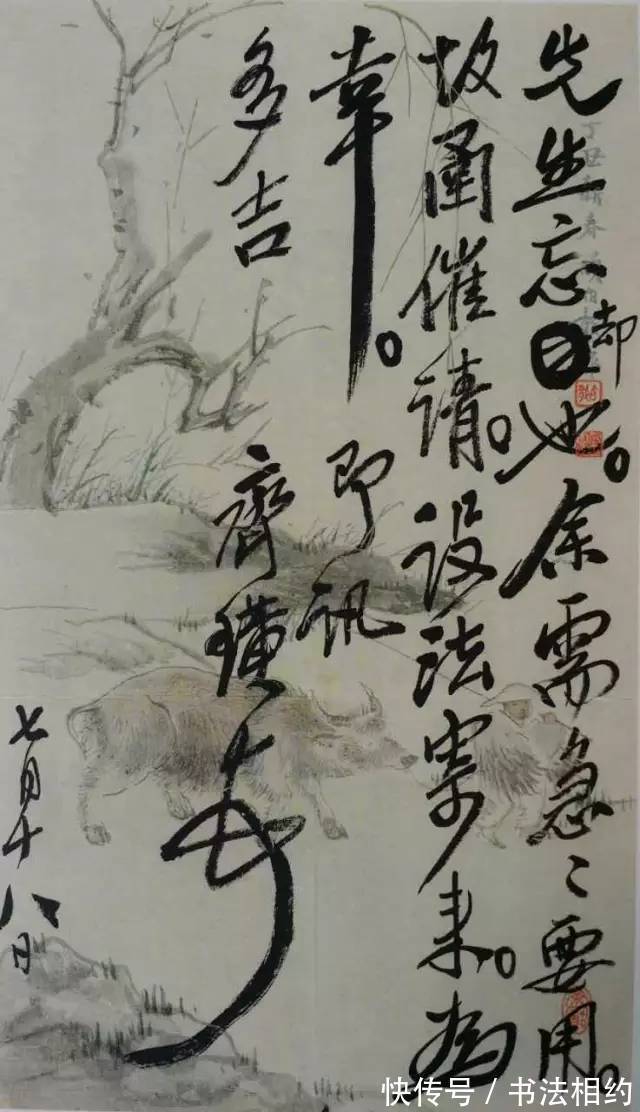 先生忘却也。余需急、要用。
故函催请。设法寄来。为
幸。即讯
多吉
齐璜
七月十八日
快传号 / 书法相约